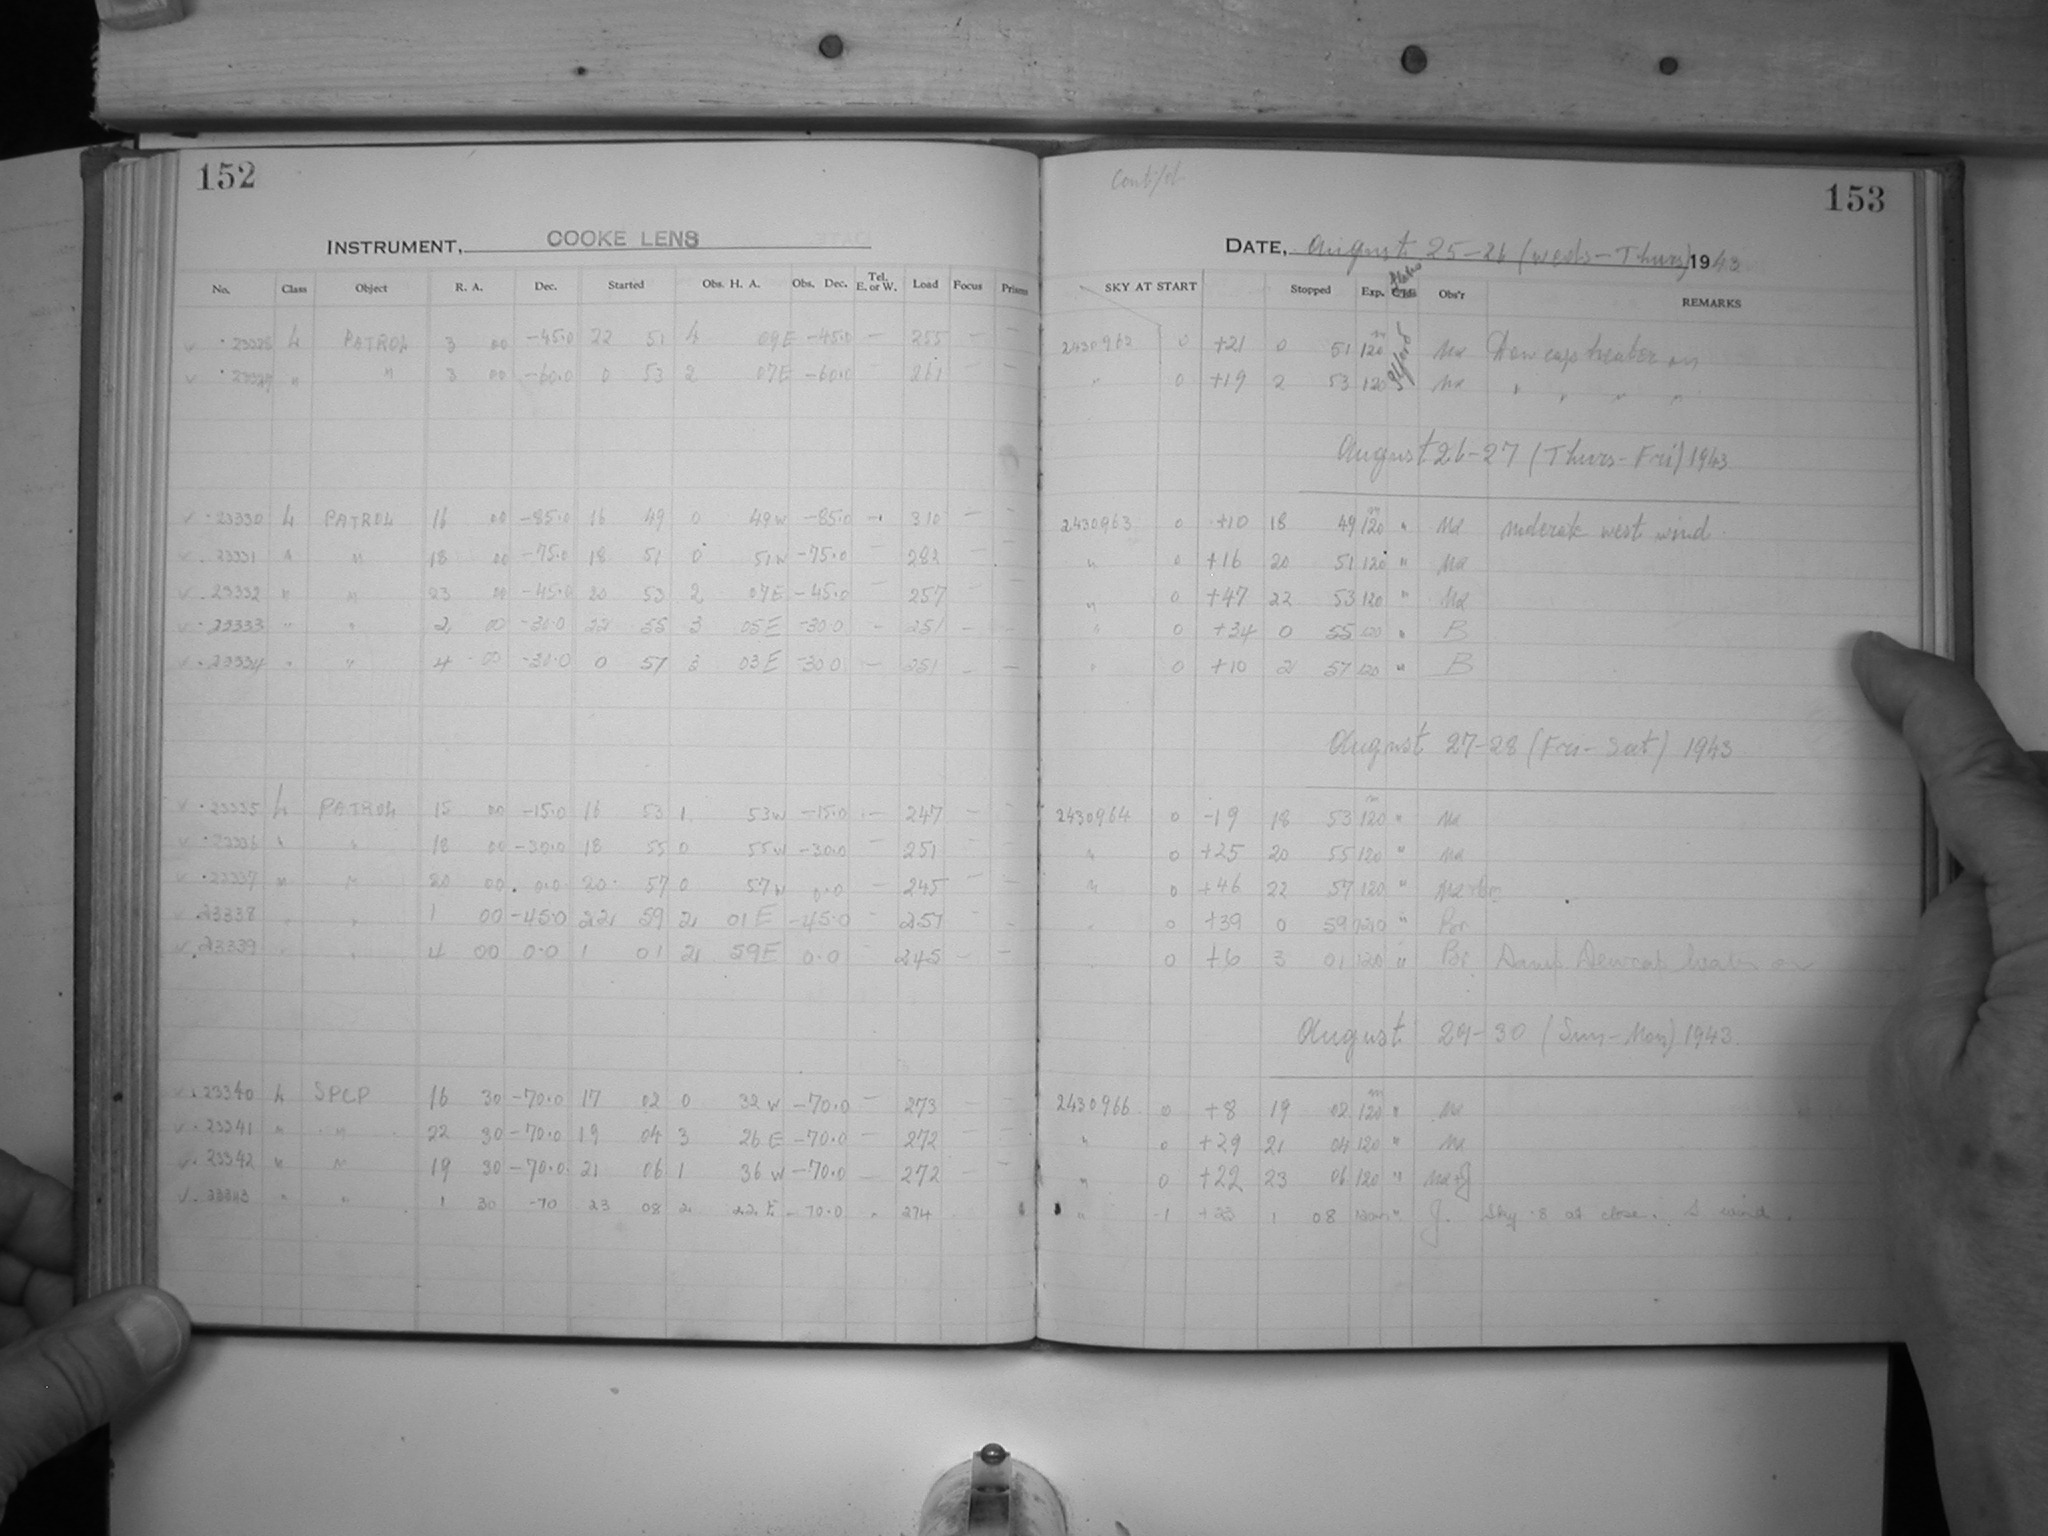 152
INSTRUMENT, COOKE LENS
No. Class Object R. A. Dec. Started Obs. H. A. Obs. Dec. Tel. E. or W. Load Focus Prisms
L PATROL 3 00 -45.0 22 51 4 09E -45.0 — 255 — —
" " 3 00 -60.0 0 53 2 07E -60.0 — 261 — —
✓ 23330 L PATROL 16 00 -85.0 16 49 0 49W -85.0 — 310 — —
✓ 23331 " " 18 00 -75.0 18 51 0 51W -75.0 — 282 — —
✓ 23332 " " 23 00 -45.0 20 53 2 07E -45.0 — 257 — —
✓ 23333 " " 2 00 -30.0 22 55 3 05E -30.0 — 251 — —
✓ 23334 " " 4 00 -30.0 0 57 3 03E -30.0 — 251 — —
✓ 23335 L PATROL 15 00 -15.0 16 53 1 53W -15.0 — 247 — —
✓ 23336 " " 18 00 -30.0 18 55 0 55W -30.0 — 251 — —
✓ 23337 " " 20 00 0.0 20 57 0 57W 0.0 — 245 — —
✓ 23338 " " 1 00 -45.0 22 59 2 01E -45.0 — 257 — —
✓ 23339 " " 4 00 0.0 1 01 2 59E 0.0 — 245 — —
✓ 23340 L SPCP 16 30 -70.0 17 02 0 32W -70.0 — 273 — —
✓ 23341 " " 22 30 -70.0 19 04 3 26E -70.0 — 272 — —
✓ 23342 " " 19 30 -70.0 21 06 1 36W -70.0 — 272 — —
✓ 23343 " " 1 30 -70 23 08 2 22E -70.0 " 274
Cont'd
153
DATE, August 25-26 (Weds-Thurs) 1943
SKY AT START Stopped Exp. Plates Obs'r REMARKS
2430962 0 +21 0 51 120m Ilford Ma Dew cap heater on
" 0 +19 2 53 120 Ma " " " "
August 26-27 (Thurs-Fri) 1943
2430963 0 +10 18 49 120m " Ma moderate west wind.
" 0 +16 20 51 120 " Ma
" 0 +47 22 53 120 " Ma
" 0 +34 0 55 120 " B
" 0 +10 2 57 120 " B
August 27-28 (Fri-Sat) 1943
2430964 0 -19 18 53 120m " Ma
" 0 +25 20 55 120 " Ma
" 0 +46 22 57 120 " Ma
" 0 +39 0 59 120 "
" 0 +6 3 01 120 " Damp Dewcap heater on
August 29-30 (Sun-Mon) 1943
2430966 0 +8 19 02 120m " Ma
" 0 +29 21 04 120 " Ma
" 0 +22 23 06 120 " Ma+J
" -1 +23 1 08 120m " J. Sky -8 at close. S wind.